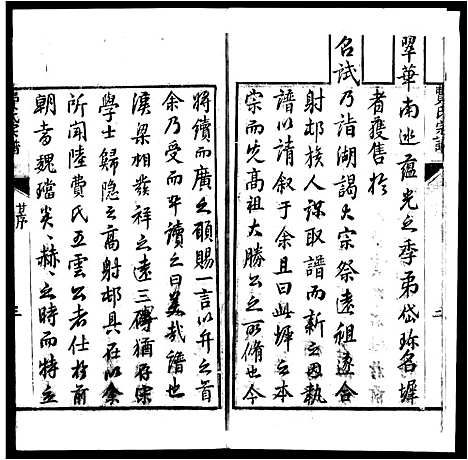 費氏宗譜
二
翠華南巡蘊光之季弟岱珎名墀
者獲售於
召試乃詣湖謁大宗祭遠祖遂合
射邨族人謀取譜而新之因執
譜以請叙于余且曰此墀之本
宗而先高祖大勝公之所脩也今
將續而廣之願賜一言以弁之首
余乃受而卒讀之曰美哉譜也
溪梁相發祥之遠三磚猶存宋
學士歸隱之高射邨具在以余
所聞陸費氏五雲公者仕於前
朝當魏璫炎、赫、之時而特立
氏宗譜
序
三